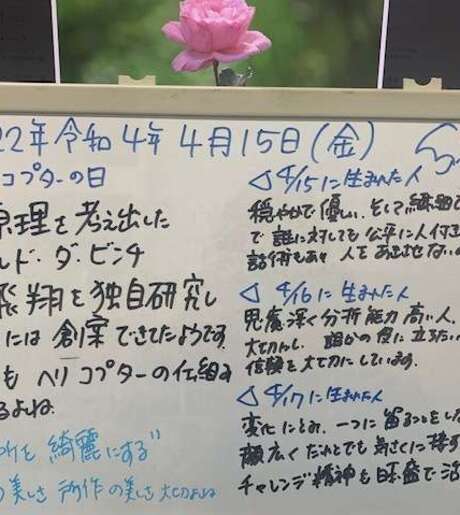 22年令和4年4月15日(金)
コプターの日
原理を考え出した
ルド・ダ・ビンチ
飛翔を独自研究し
には創案できてたようです
も ヘリコプターの仕組み
るよね
を綺麗にする"
美しさ 所作の美しさ 大切よね
◁ 4/15に生まれた人
穏やかで優しい、そして繊細
で 誰に対しても公平に人付き
話術もあり 人をあきさせない
◁ 4/16に生まれた人
思慮深く分析能力高い人、
大切にし、誰かの役に立ちたい
信頼を大切にしています。
◁ 4/17に生まれた人
変化にとみ、一つに留ることをしな
顔広く だれとでも気さくに接す
チャレンジ精神も旺盛で活